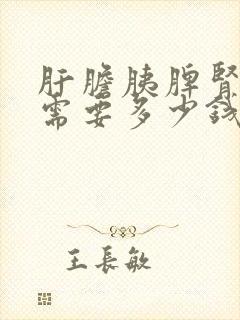 肝膽胰脾腎
需要多少錢
王長敏